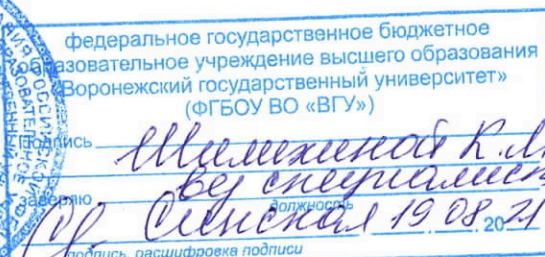 федеральное государственное бюджетное
образовательное учреждение высшего образования
«Воронежский государственный университет»
(ФГБОУ ВО «ВГУ»)
Подпись Шилихиной К.М.
заверяю вед специалист
должность
Синская 19.08.2021
подпись, расшифровка подписи